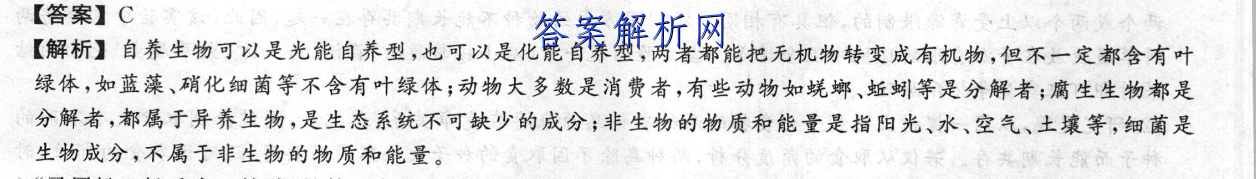 【答案】C
答案解析网
【解析】自养生物可以是光能自养型,也可以是化能自养型,两者都能把无机物转变成有机物,但不一定都含有叶
绿体,如蓝藻、硝化细菌等不含有叶绿体;动物大多数是消费者,有些动物如蜣螂、蚯蚓等是分解者;腐生生物都是
分解者,都属于异养生物,是生态系统不可缺少的成分;非生物的物质和能量是指阳光、水、空气、土壤等,细菌是
生物成分,不属于非生物的物质和能量。